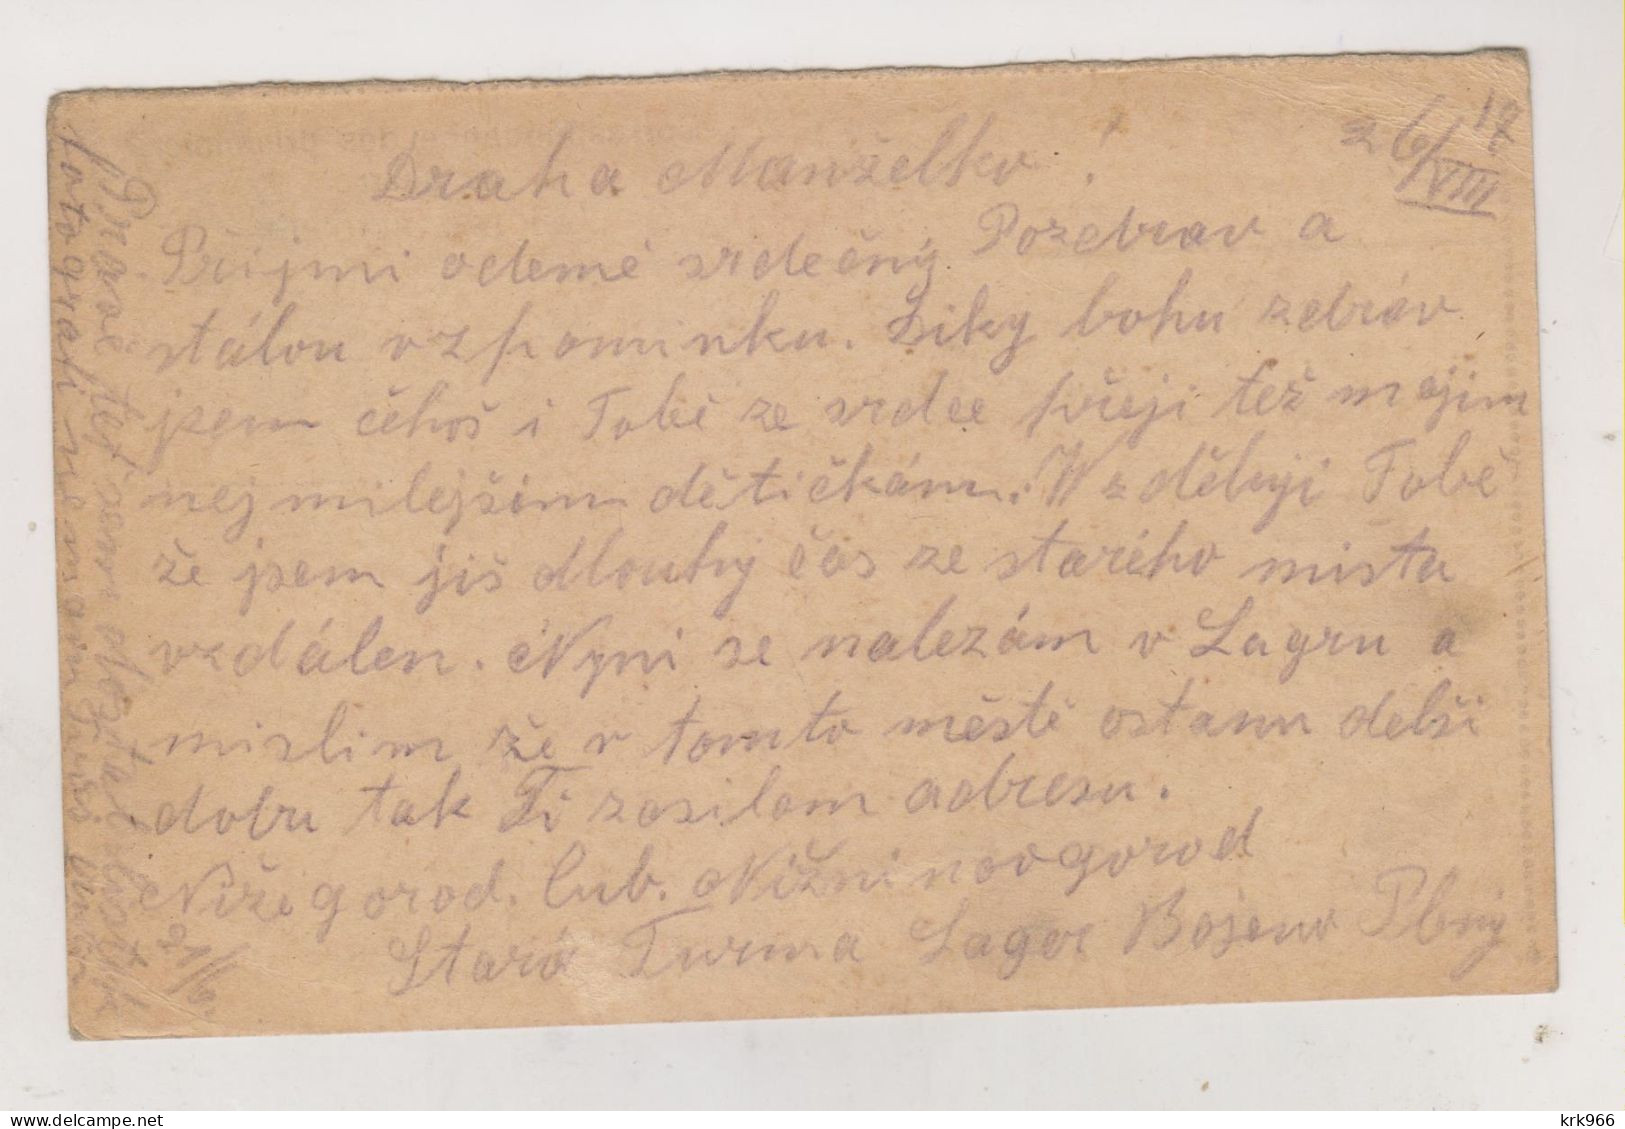 z 6/VIII 17
Draha Manželko!
Přijmi odemě srdečný Pozdrav a
stálou vzpominku. Diky bohu zdráv
jsem čehoš i Tobě ze srdce přeji též mojim
nejmilejšim dětičkám. Wzděluji Tobě
že jsem jiš dlouhý čas ze starého mista
vzdálen. Nyni se nalezám v Lagru a
mislim že v tomto městě ostanu delši
dobu tak Ti zasilam adresu.
Nižegorod. Gub. Nižninovgorod
Stara Turma Lager Bojenv Plený
Pravě teť sem obdržel listek
21/6.
fotografi nemaim
krk966